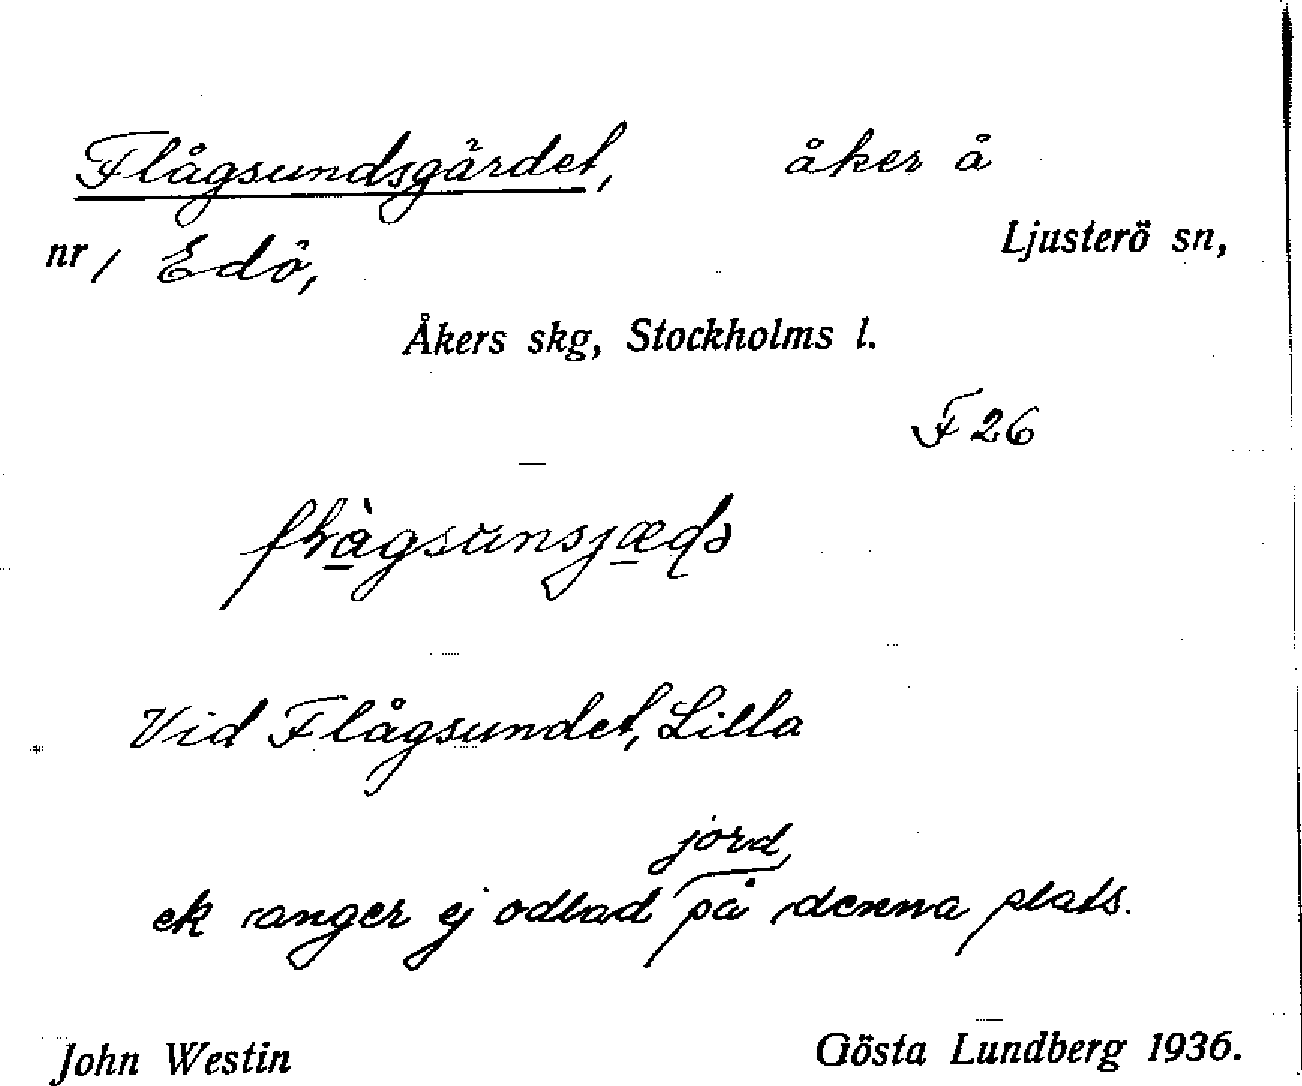 Flågsundsgärdet, åker å
Ljusterö sn,
nr 1 Edö,
Åkers skg, Stockholms l.
F 26
Vid Flågsundet, Lilla
jord
ek anger ej odlad på denna plats.
John Westin
Gösta Lundberg 1936.